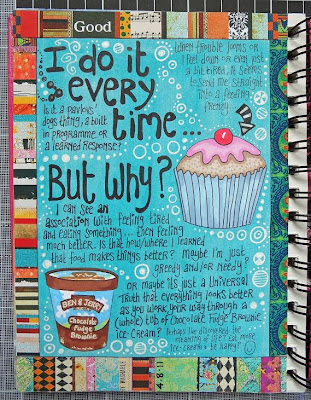 Good
I do it
every
time...
when trouble looms or I
feel down or even just
a bit tired, it seems
to send me straight
into a feeding
frenzy...
is it a pavlovs'
dogs thing, a built
in programme or
a learned response?
But why?
I can see an
association with feeling tired
and eating something... then feeling
much better. Is that how/where I learned
that food makes things better? Maybe I'm just
greedy and/or needy?
or maybe its just a Universal
Truth that everything looks better
as you work your way through a
(whole) tub of Chocolate Fudge Brownie
ice-cream? perhaps I've discovered the
meaning of life? Eat more
ice-cream & be happy!
BEN & JERRY'S
Chocolate
Fudge
Brownie
4-8-11